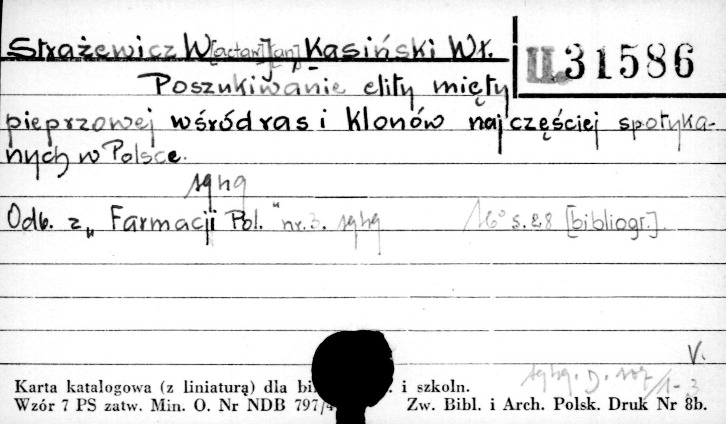 Strażewicz W[acław] [Jan] Kasiński Wł.
II.31586
Poszukiwanie elity mięty
pieprzowej wśród ras i klonów najczęściej spotyka-
nych w Polsce.
1949
Odb. z „Farmacji Pol." nr. 3. 1949 16° s. 2,8 [bibliogr.].
V.
1949. D.
Karta katalogowa (z liniaturą) dla i szkoln.
Wzór 7 PS zatw. Min. O. Nr NDB 797/4 Zw. Bibl. i Arch. Polsk. Druk Nr 8b.